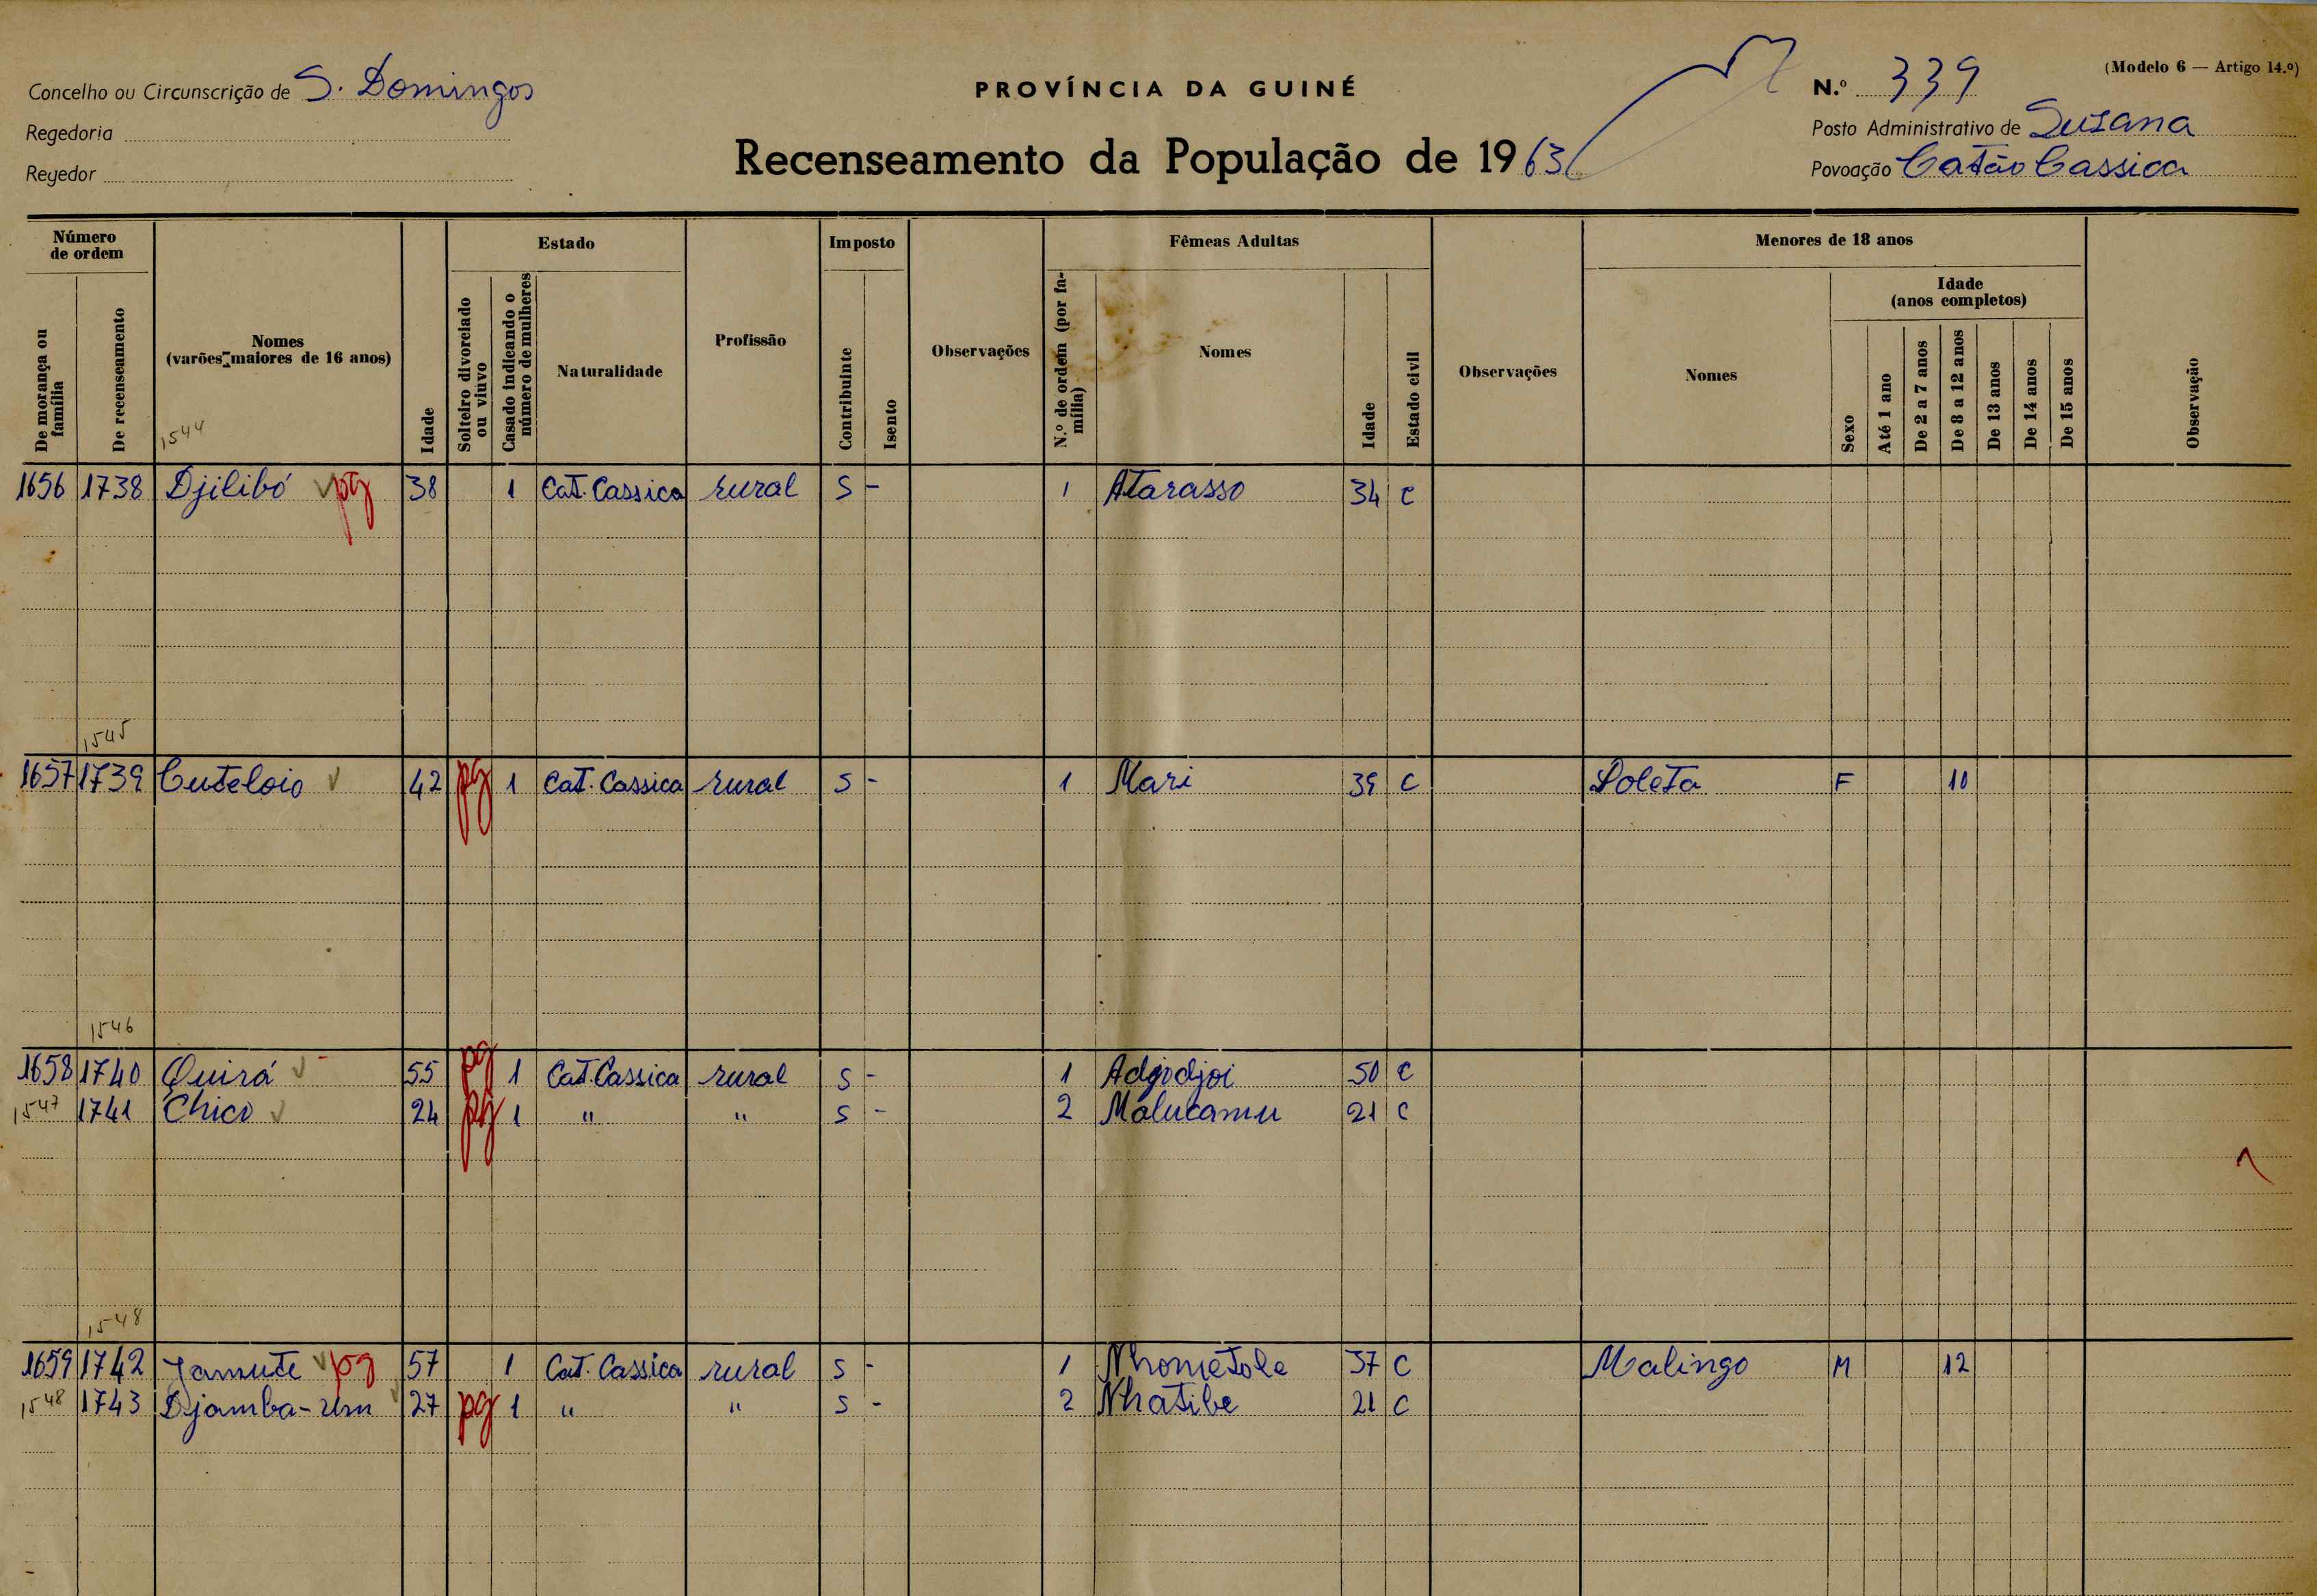 Concelho ou Circunscrição de S. Domingos
Regedoria
Regedor
PROVÍNCIA DA GUINÉ
Recenseamento da População de 1963
(Modelo 6 — Artigo 14.º)
N.º 339
Posto Administrativo de Susana
Povoação Catão Cassica
Número de ordem
De morança ou família
De recenseamento
Nomes (varões maiores de 16 anos)
1544
Idade
Estado
Solteiro divorciado ou viuvo
Casado indicando o número de mulheres
Naturalidade
Profissão
Imposto
Contribuinte
Isento
Observações
Fêmeas Adultas
N.º de ordem (por família)
Nomes
Idade
Estado civil
Observações
Menores de 18 anos
Nomes
Sexo
Idade (anos completos)
Até 1 ano
De 2 a 7 anos
De 8 a 12 anos
De 13 anos
De 14 anos
De 15 anos
Observação
1656 1738 Djilibó pg 38 1 Cat. Cassica rural S - 1 Atarasso 34 C
1545
1657 1739 Cuteloio 42 pg 1 Cat. Cassica rural S - 1 Mari 39 C Soleta F 10
1546
1658 1740 Quirá 55 pg 1 Cat. Cassica rural S - 1 Adjodjoi 50 C
1547 1741 Chico 24 pg 1 " " S - 2 Malucamu 21 C
1548
1659 1742 Jamute pg 57 1 Cat. Cassica rural S - 1 Nhometole 37 C Malingo M 12
1548 1743 Djamba-um 27 pg 1 " " S - 2 Nhatibe 21 C